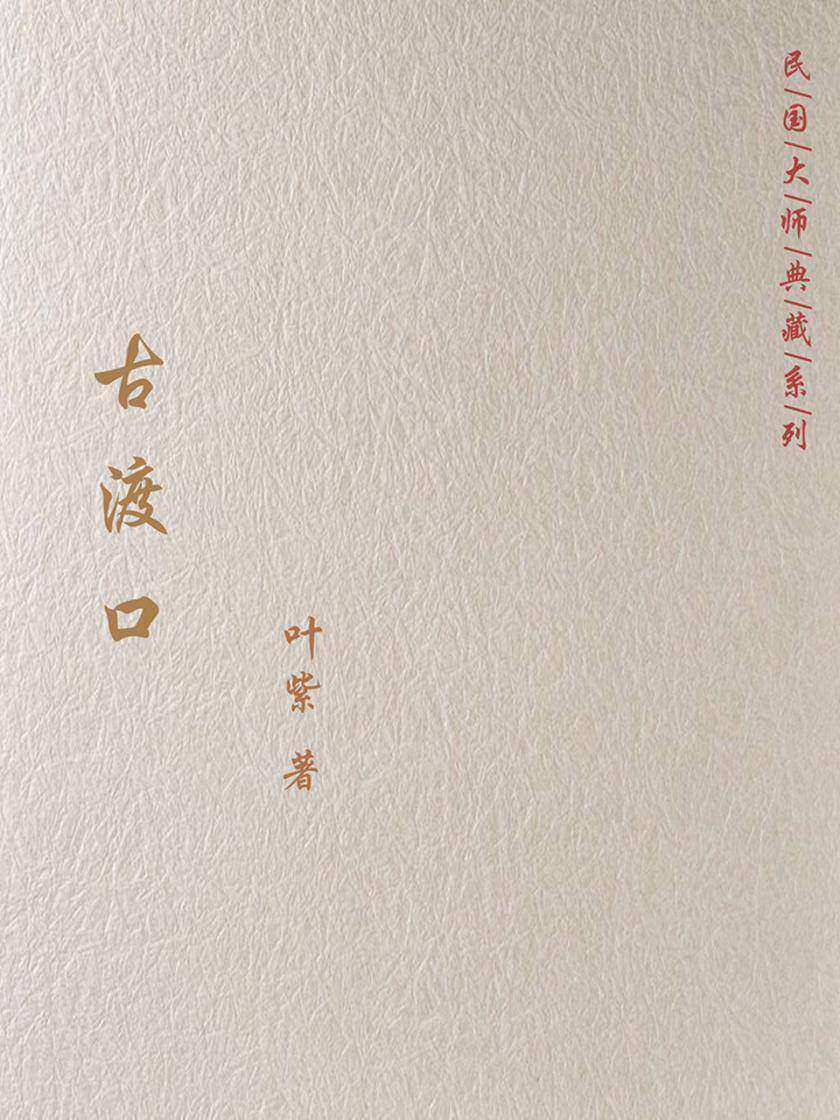 民/国/大/师/典/藏/系/列
古渡口
叶紫 著